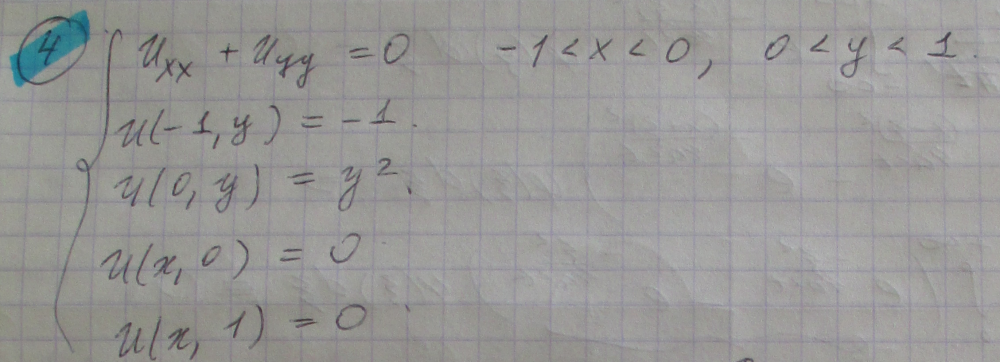 4 { u_xx + u_yy = 0   -1 < x < 0,   0 < y < 1.
u(-1, y) = -1.
u(0, y) = y².
u(x, 0) = 0
u(x, 1) = 0